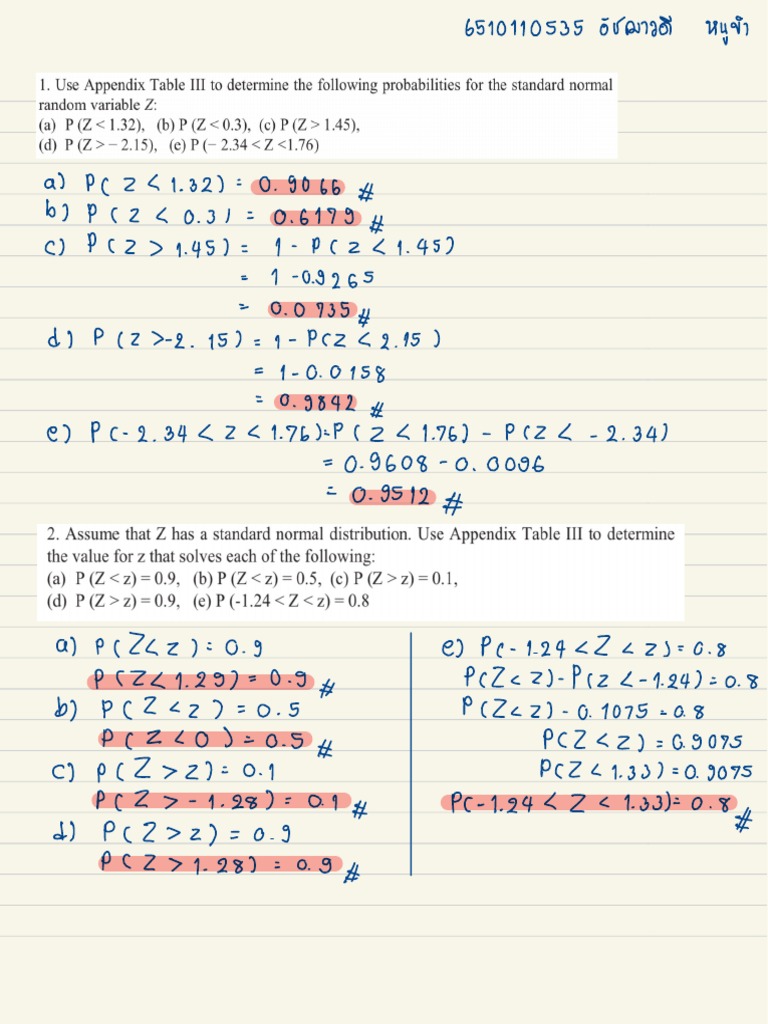 6510110535 อัชฌาวดี หนูขำ
1. Use Appendix Table III to determine the following probabilities for the standard normal
random variable Z:
(a) P (Z < 1.32), (b) P (Z < 0.3), (c) P (Z > 1.45),
(d) P (Z > − 2.15), (e) P (− 2.34 < Z <1.76)
a) P( Z < 1.32) = 0.9066 #
b) P ( Z < 0.3) = 0.6179 #
c) P ( Z > 1.45) = 1 - P( Z < 1.45)
= 1 -0.9265
= 0.0735 #
d) P (Z >-2.15) = 1 - P(Z < 2.15 )
= 1-0.0158
= 0.9842 #
e) P(-2.34 < Z < 1.76)=P( Z < 1.76) - P(Z < -2.34)
= 0.9608 -0.0096
= 0.9512 #
2. Assume that Z has a standard normal distribution. Use Appendix Table III to determine
the value for z that solves each of the following:
(a) P (Z < z) = 0.9, (b) P (Z < z) = 0.5, (c) P (Z > z) = 0.1,
(d) P (Z > z) = 0.9, (e) P (-1.24 < Z < z) = 0.8
a) P(Z<z) = 0.9
P(Z< 1.29) = 0.9 #
b) P(Z<z) = 0.5
P( Z < 0 ) = 0.5 #
c) P(Z > z) = 0.1
P(Z > -1.28) = 0.1 #
d) P(Z > z) = 0.9
P(Z > 1.28) = 0.9 #
e) P(-1.24 < Z < z) = 0.8
P(Z<z)-P(z <-1.24)=0.8
P(Z<z)-0.1075 =0.8
P(Z <z) = 0.9075
P(Z < 1.33) = 0.9075
P(-1.24 < Z < 1.33)= 0.8 #